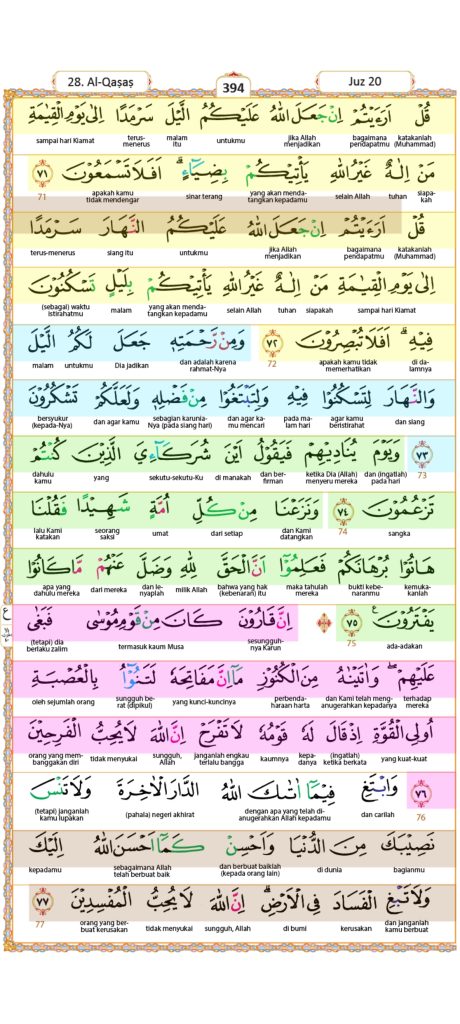 28. Al-Qaṣaṣ 394 Juz 20
قُلْ اَرَءَيْتُمْ اِنْ جَعَلَ اللّٰهُ عَلَيْكُمُ الَّيْلَ سَرْمَدًا اِلٰى يَوْمِ الْقِيٰمَةِ
katakanlah (Muhammad) bagaimana pendapatmu jika Allah menjadikan untukmu malam itu terus-menerus sampai hari Kiamat
مَنْ اِلٰهٌ غَيْرُ اللّٰهِ يَأْتِيْكُمْ بِضِيَاۤءٍ ۗ اَفَلَا تَسْمَعُوْنَ ٧١
siapa-kah tuhan selain Allah yang akan menda-tangkan kepadamu sinar terang apakah kamu tidak mendengar 71
قُلْ اَرَءَيْتُمْ اِنْ جَعَلَ اللّٰهُ عَلَيْكُمُ النَّهَارَ سَرْمَدًا
katakanlah (Muhammad) bagaimana pendapatmu jika Allah menjadikan untukmu siang itu terus-menerus
اِلٰى يَوْمِ الْقِيٰمَةِ مَنْ اِلٰهٌ غَيْرُ اللّٰهِ يَأْتِيْكُمْ بِلَيْلٍ تَسْكُنُوْنَ
sampai hari Kiamat siapakah tuhan selain Allah yang akan menda-tangkan kepadamu malam (sebagai) waktu istirahatmu
فِيْهِ ۗ اَفَلَا تُبْصِرُوْنَ ٧٢ وَمِنْ رَّحْمَتِهٖ جَعَلَ لَكُمُ الَّيْلَ
di da-lamnya apakah kamu tidak memerhatikan 72 dan adalah karena rahmat-Nya Dia jadikan untukmu malam
وَالنَّهَارَ لِتَسْكُنُوْا فِيْهِ وَلِتَبْتَغُوْا مِنْ فَضْلِهٖ وَلَعَلَّكُمْ تَشْكُرُوْنَ
dan siang agar kamu beristirahat pada ma-lam hari dan agar ka-mu mencari sebagian karunia-Nya (pada siang hari) dan agar kamu bersyukur (kepada-Nya)
٧٣ وَيَوْمَ يُنَادِيْهِمْ فَيَقُوْلُ اَيْنَ شُرَكَاۤءِيَ الَّذِيْنَ كُنْتُمْ
73 dan (ingatlah) pada hari ketika Dia (Allah) menyeru mereka dan ber-firman di manakah sekutu-sekutu-Ku yang dahulu kamu
تَزْعُمُوْنَ ٧٤ وَنَزَعْنَا مِنْ كُلِّ اُمَّةٍ شَهِيْدًا فَقُلْنَا
sangka 74 dan Kami datangkan dari setiap umat seorang saksi lalu Kami katakan
هَاتُوْا بُرْهَانَكُمْ فَعَلِمُوْٓا اَنَّ الْحَقَّ لِلّٰهِ وَضَلَّ عَنْهُمْ مَّا كَانُوْا
kemuka-kanlah bukti kebe-naranmu maka tahulah mereka bahwa yang hak (kebenaran) itu milik Allah dan le-nyaplah dari mereka apa yang dahulu mereka
يَفْتَرُوْنَ ࣖ ٧٥ اِنَّ قَارُوْنَ كَانَ مِنْ قَوْمِ مُوْسٰى فَبَغٰى
ada-adakan 75 sesungguh-nya Karun termasuk kaum Musa (tetapi) dia berlaku zalim
عَلَيْهِمْ ۖ وَاٰتَيْنٰهُ مِنَ الْكُنُوْزِ مَآ اِنَّ مَفَاتِحَهٗ لَتَنُوْۤاُ بِالْعُصْبَةِ
terhadap mereka dan Kami telah meng-anugerahkan kepadanya perbenda-haraan harta yang kunci-kuncinya sungguh be-rat (dipikul) oleh sejumlah orang
اُولِى الْقُوَّةِ اِذْ قَالَ لَهٗ قَوْمُهٗ لَا تَفْرَحْ اِنَّ اللّٰهَ لَا يُحِبُّ الْفَرِحِيْنَ
yang kuat-kuat (ingatlah) ketika berkata kepa-danya kaumnya janganlah engkau terlalu bangga sungguh, Allah tidak menyukai orang yang mem-banggakan diri
٧٦ وَابْتَغِ فِيْمَآ اٰتٰىكَ اللّٰهُ الدَّارَ الْاٰخِرَةَ وَلَا تَنْسَ
76 dan carilah dengan apa yang telah di-anugerahkan Allah kepadamu (pahala) negeri akhirat (tetapi) janganlah kamu lupakan
نَصِيْبَكَ مِنَ الدُّنْيَا وَاَحْسِنْ كَمَآ اَحْسَنَ اللّٰهُ اِلَيْكَ
bagianmu di dunia dan berbuat baiklah (kepada orang lain) sebagaimana Allah telah berbuat baik kepadamu
وَلَا تَبْغِ الْفَسَادَ فِى الْاَرْضِ ۗ اِنَّ اللّٰهَ لَا يُحِبُّ الْمُفْسِدِيْنَ ٧٧
dan janganlah kamu berbuat kerusakan di bumi sungguh, Allah tidak menyukai orang yang ber-buat kerusakan 77